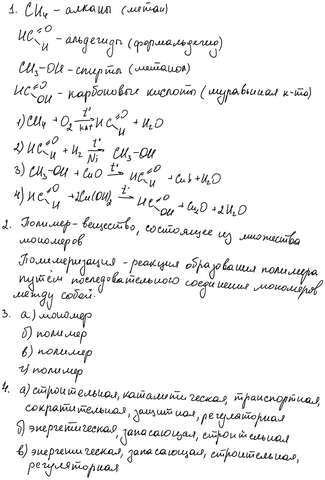 1. CH4 - алканы (метан)
HC=O H - альдегиды (формальдегид)
CH3-OH - спирты (метанол)
HC=O OH - карбоновые кислоты (муравьиная к-та)
1) CH4 + O2 t° кат HC=O H + H2O
2) HC=O H + H2 t° Ni CH3-OH
3) CH3-OH + CuO t° → HC=O H + Cu↓ + H2O
4) HC=O H + 2Cu(OH)2 t° → HC=O OH + Cu2O + 2H2O
2. Полимер - вещество, состоящее из множества
мономеров
Полимеризация - реакция образования полимера
путём последовательного соединения мономеров
между собой.
3. а) мономер
б) полимер
в) полимер
г) полимер
4. а) строительная, каталитическая, транспортная,
сократительная, защитная, регуляторная
б) энергетическая, запасающая, строительная
в) энергетическая, запасающая, строительная,
регуляторная